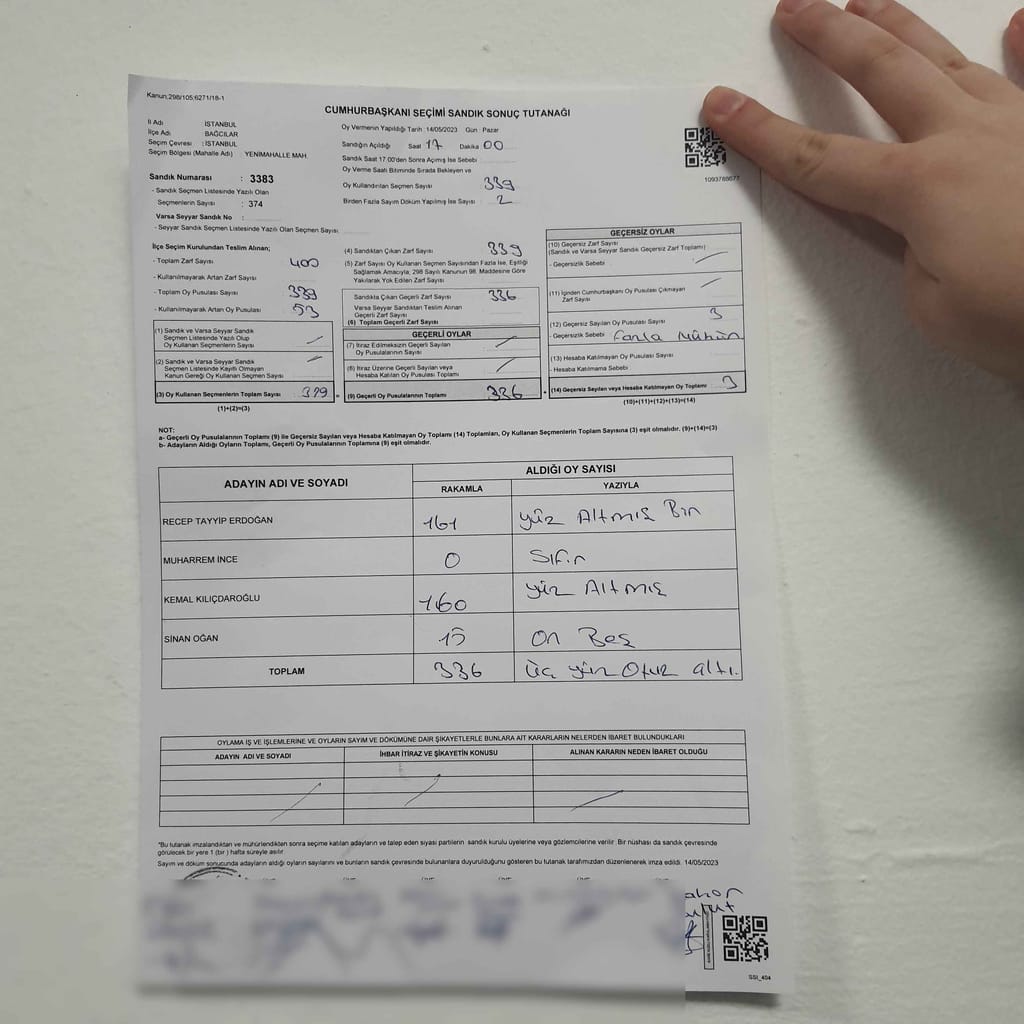 Kanun;298/105;6271/18-1
CUMHURBAŞKANI SEÇİMİ SANDIK SONUÇ TUTANAĞI
İl Adı : İSTANBUL
İlçe Adı : BAĞCILAR
Seçim Çevresi : İSTANBUL
Seçim Bölgesi (Mahalle Adı) : YENİMAHALLE MAH.
Sandık Numarası : 3383
- Sandık Seçmen Listesinde Yazılı Olan
Seçmenlerin Sayısı : 374
Varsa Seyyar Sandık No :
- Seyyar Sandık Seçmen Listesinde Yazılı Olan Seçmen Sayısı
Oy Vermenin Yapıldığı Tarih :14/05/2023 Gün : Pazar
Sandığın Açıldığı Saat 17 Dakika 00
Sandık Saat 17.00'den Sonra Açımış İse Sebebi
Oy Verme Saati Bitiminde Sırada Bekleyen ve
Oy Kullandırılan Seçmen Sayısı 339
Birden Fazla Sayım Döküm Yapılmış İse Sayısı 2
1093788677
İlçe Seçim Kurulundan Teslim Alınan;
- Toplam Zarf Sayısı 400
- Kullanılmayarak Artan Zarf Sayısı
- Toplam Oy Pusulası Sayısı 339
- Kullanılmayarak Artan Oy Pusulası 53
(1) Sandık ve Varsa Seyyar Sandık
Seçmen Listesinde Yazılı Olup
Oy Kullanan Seçmenlerin Sayısı
(2) Sandık ve Varsa Seyyar Sandık
Seçmen Listesinde Kayıtlı Olmayan
Kanun Gereği Oy Kullanan Seçmen Sayısı
(3) Oy Kullanan Seçmenlerin Toplam Sayısı 339 =
(1)+(2)=(3)
(4) Sandıktan Çıkan Zarf Sayısı 339
(5) Zarf Sayısı Oy Kullanan Seçmen Sayısından Fazla İse, Eşitliği
Sağlamak Amacıyla, 298 Sayılı Kanunun 98. Maddesine Göre
Yakılarak Yok Edilen Zarf Sayısı
Sandıkta Çıkan Geçerli Zarf Sayısı 336
Varsa Seyyar Sandıktan Teslim Alınan
Geçerli Zarf Sayısı
(6) Toplam Geçerli Zarf Sayısı
GEÇERLİ OYLAR
(7) İtiraz Edilmeksizin Geçerli Sayılan
Oy Pusulalarının Sayısı
(8) İtiraz Üzerine Geçerli Sayılan veya
Hesaba Katılan Oy Pusulası Toplamı
(9) Geçerli Oy Pusulalarının Toplamı 336 +
GEÇERSİZ OYLAR
(10) Geçersiz Zarf Sayısı
(Sandık ve Varsa Seyyar Sandık Geçersiz Zarf Toplamı)
- Geçersizlik Sebebi :
(11) İçinden Cumhurbaşkanı Oy Pusulası Çıkmayan
Zarf Sayısı
(12) Geçersiz Sayılan Oy Pusulası Sayısı 3
- Geçersizlik Sebebi Fazla Mühür
(13) Hesaba Katılmayan Oy Pusulası Sayısı
- Hesaba Katılmama Sebebi
(14) Geçersiz Sayılan veya Hesaba Katılmayan Oy Toplamı 3
(10)+(11)+(12)+(13)=(14)
NOT:
a- Geçerli Oy Pusulalarının Toplamı (9) ile Geçersiz Sayılan veya Hesaba Katılmayan Oy Toplamı (14) Toplamları, Oy Kullanan Seçmenlerin Toplam Sayısına (3) eşit olmalıdır. (9)+(14)=(3)
b- Adayların Aldığı Oyların Toplamı, Geçerli Oy Pusulalarının Toplamına (9) eşit olmalıdır.
ADAYIN ADI VE SOYADI
ALDIĞI OY SAYISI
RAKAMLA YAZIYLA
RECEP TAYYİP ERDOĞAN 161 yüz Altmış Bir
MUHARREM İNCE 0 Sıfır
KEMAL KILIÇDAROĞLU 160 yüz Altmış
SİNAN OĞAN 15 On Beş
TOPLAM 336 Üç yüz Otuz altı.
OYLAMA İŞ VE İŞLEMLERİNE VE OYLARIN SAYIM VE DÖKÜMÜNE DAİR ŞİKAYETLERLE BUNLARA AİT KARARLARIN NELERDEN İBARET BULUNDUKLARI
ADAYIN ADI VE SOYADI İHBAR İTİRAZ VE ŞİKAYETİN KONUSU ALINAN KARARIN NEDEN İBARET OLDUĞU
*Bu tutanak imzalandıktan ve mühürlendikten sonra seçime katılan adayların ve talep eden siyasi partilerin sandık kurulu üyelerine veya gözlemcilerine verilir. Bir nüshası da sandık çevresinde
görülecek bir yere 1 (bir ) hafta süreyle asılır.
Sayım ve döküm sonucunda adayların aldığı oyların sayılarını ve bunların sandık çevresinde bulunanlara duyurulduğunu gösteren bu tutanak tarafımızdan düzenlenerek imza edildi. 14/05/2023
SSI_404